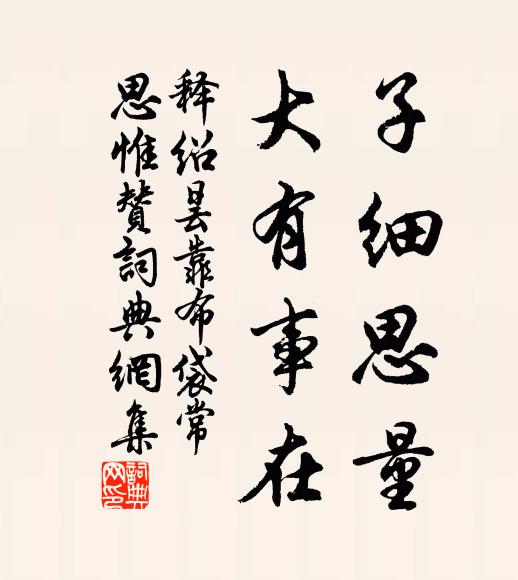 子细思量
大有事在
释绍昙靠布袋常
思惟赞词典網集
詞典網印